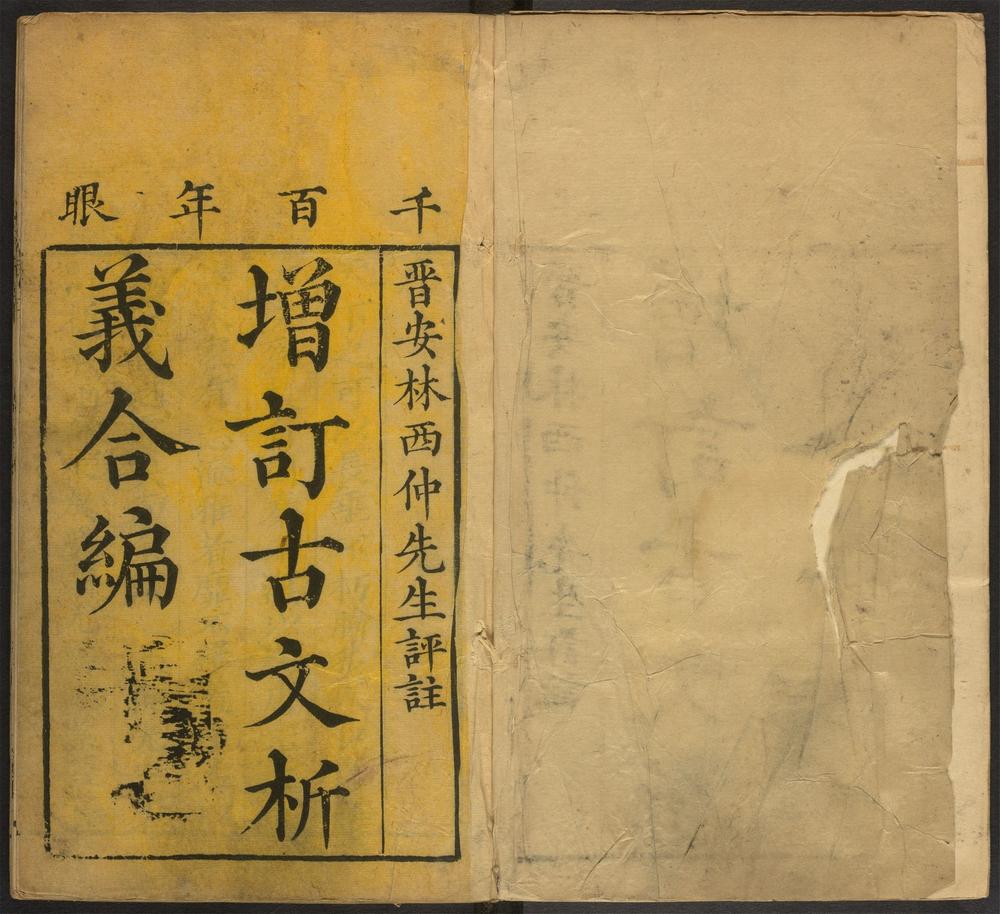 千百年眼
晋安林西仲先生評註
增訂古文析
義合編